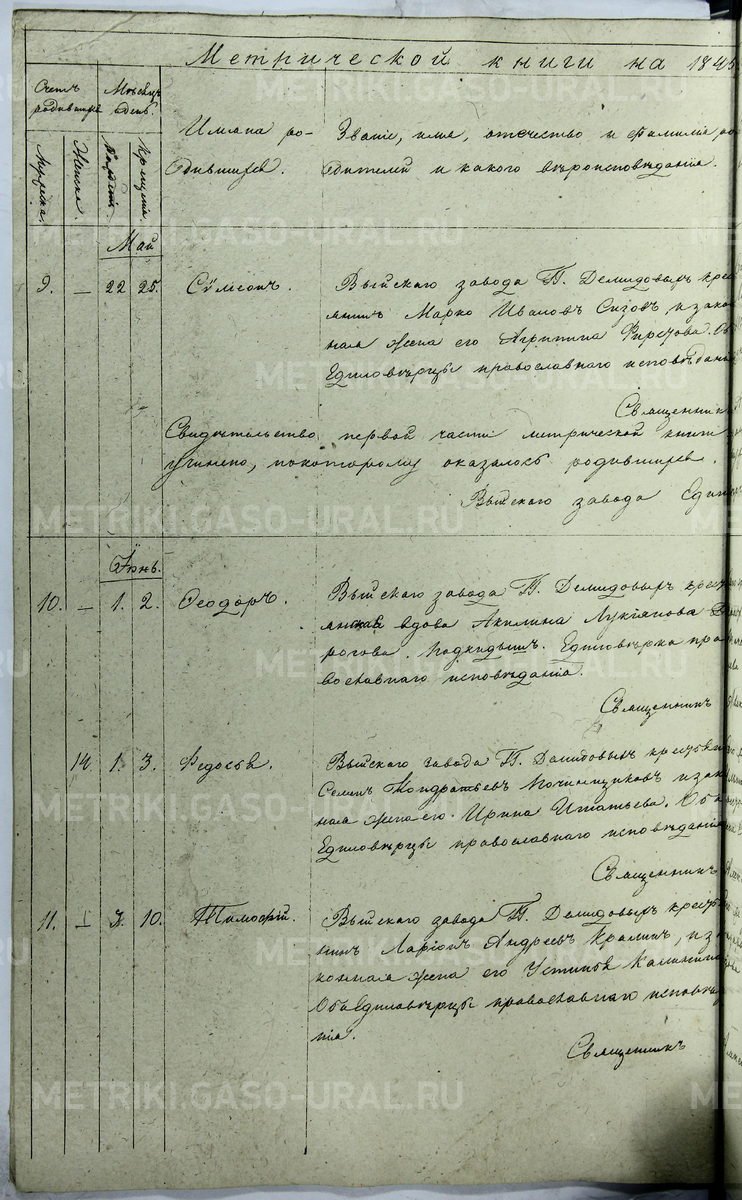 Метрической книги на 1845
Счетъ родившихся
Мѣсяцъ и день.
Мужеска.
Женска.
Рожденія.
Крещенія.
Имяна ро-
дившихся.
Званіе, имя, отечество и фамилія ро-
дителей и какого вѣроисповѣданія.
Май
9. — 22 25. Сѵмеонъ.
Выйскаго завода Гг. Демидовыхъ крес
янинъ Марко Ивановъ Сизовъ, и зако
нная жена его Агрипина Фирсова. Оба
Единовѣрцы православнаго исповѣданія
Священникъ
Свидѣтельство первой части метрической книги
учинено, покоторому оказалось родившихся.
Выйскаго завода Един
Іюнь.
10. — 1. 2. Ѳеодоръ.
Выйскаго завода Гг. Демидовыхъ крест
янская вдова Акилина Лукіянова
рогова. Подкидышъ. Единовѣрка пра
вославнаго исповѣданія.
Священникъ
14. 1. 3. Федосья.
Выйскаго завода Гг. Демидовыхъ крестьян
Семенъ Кондратьевъ Починщиковъ и зако
нная жена его Ирина Игнатьева. Оба
Единовѣрцы православнаго исповѣданія
Священникъ
11. — 7. 10. Тимоѳей.
Выйскаго завода Гг. Демидовыхъ кресть
нинъ Ларіонъ Андреевъ Кралинъ, и за
конная жена его Устинья Калинина
Оба Единовѣрцы православнаго исповѣда
нія.
Священникъ
METRIKI.GASO-URAL.RU